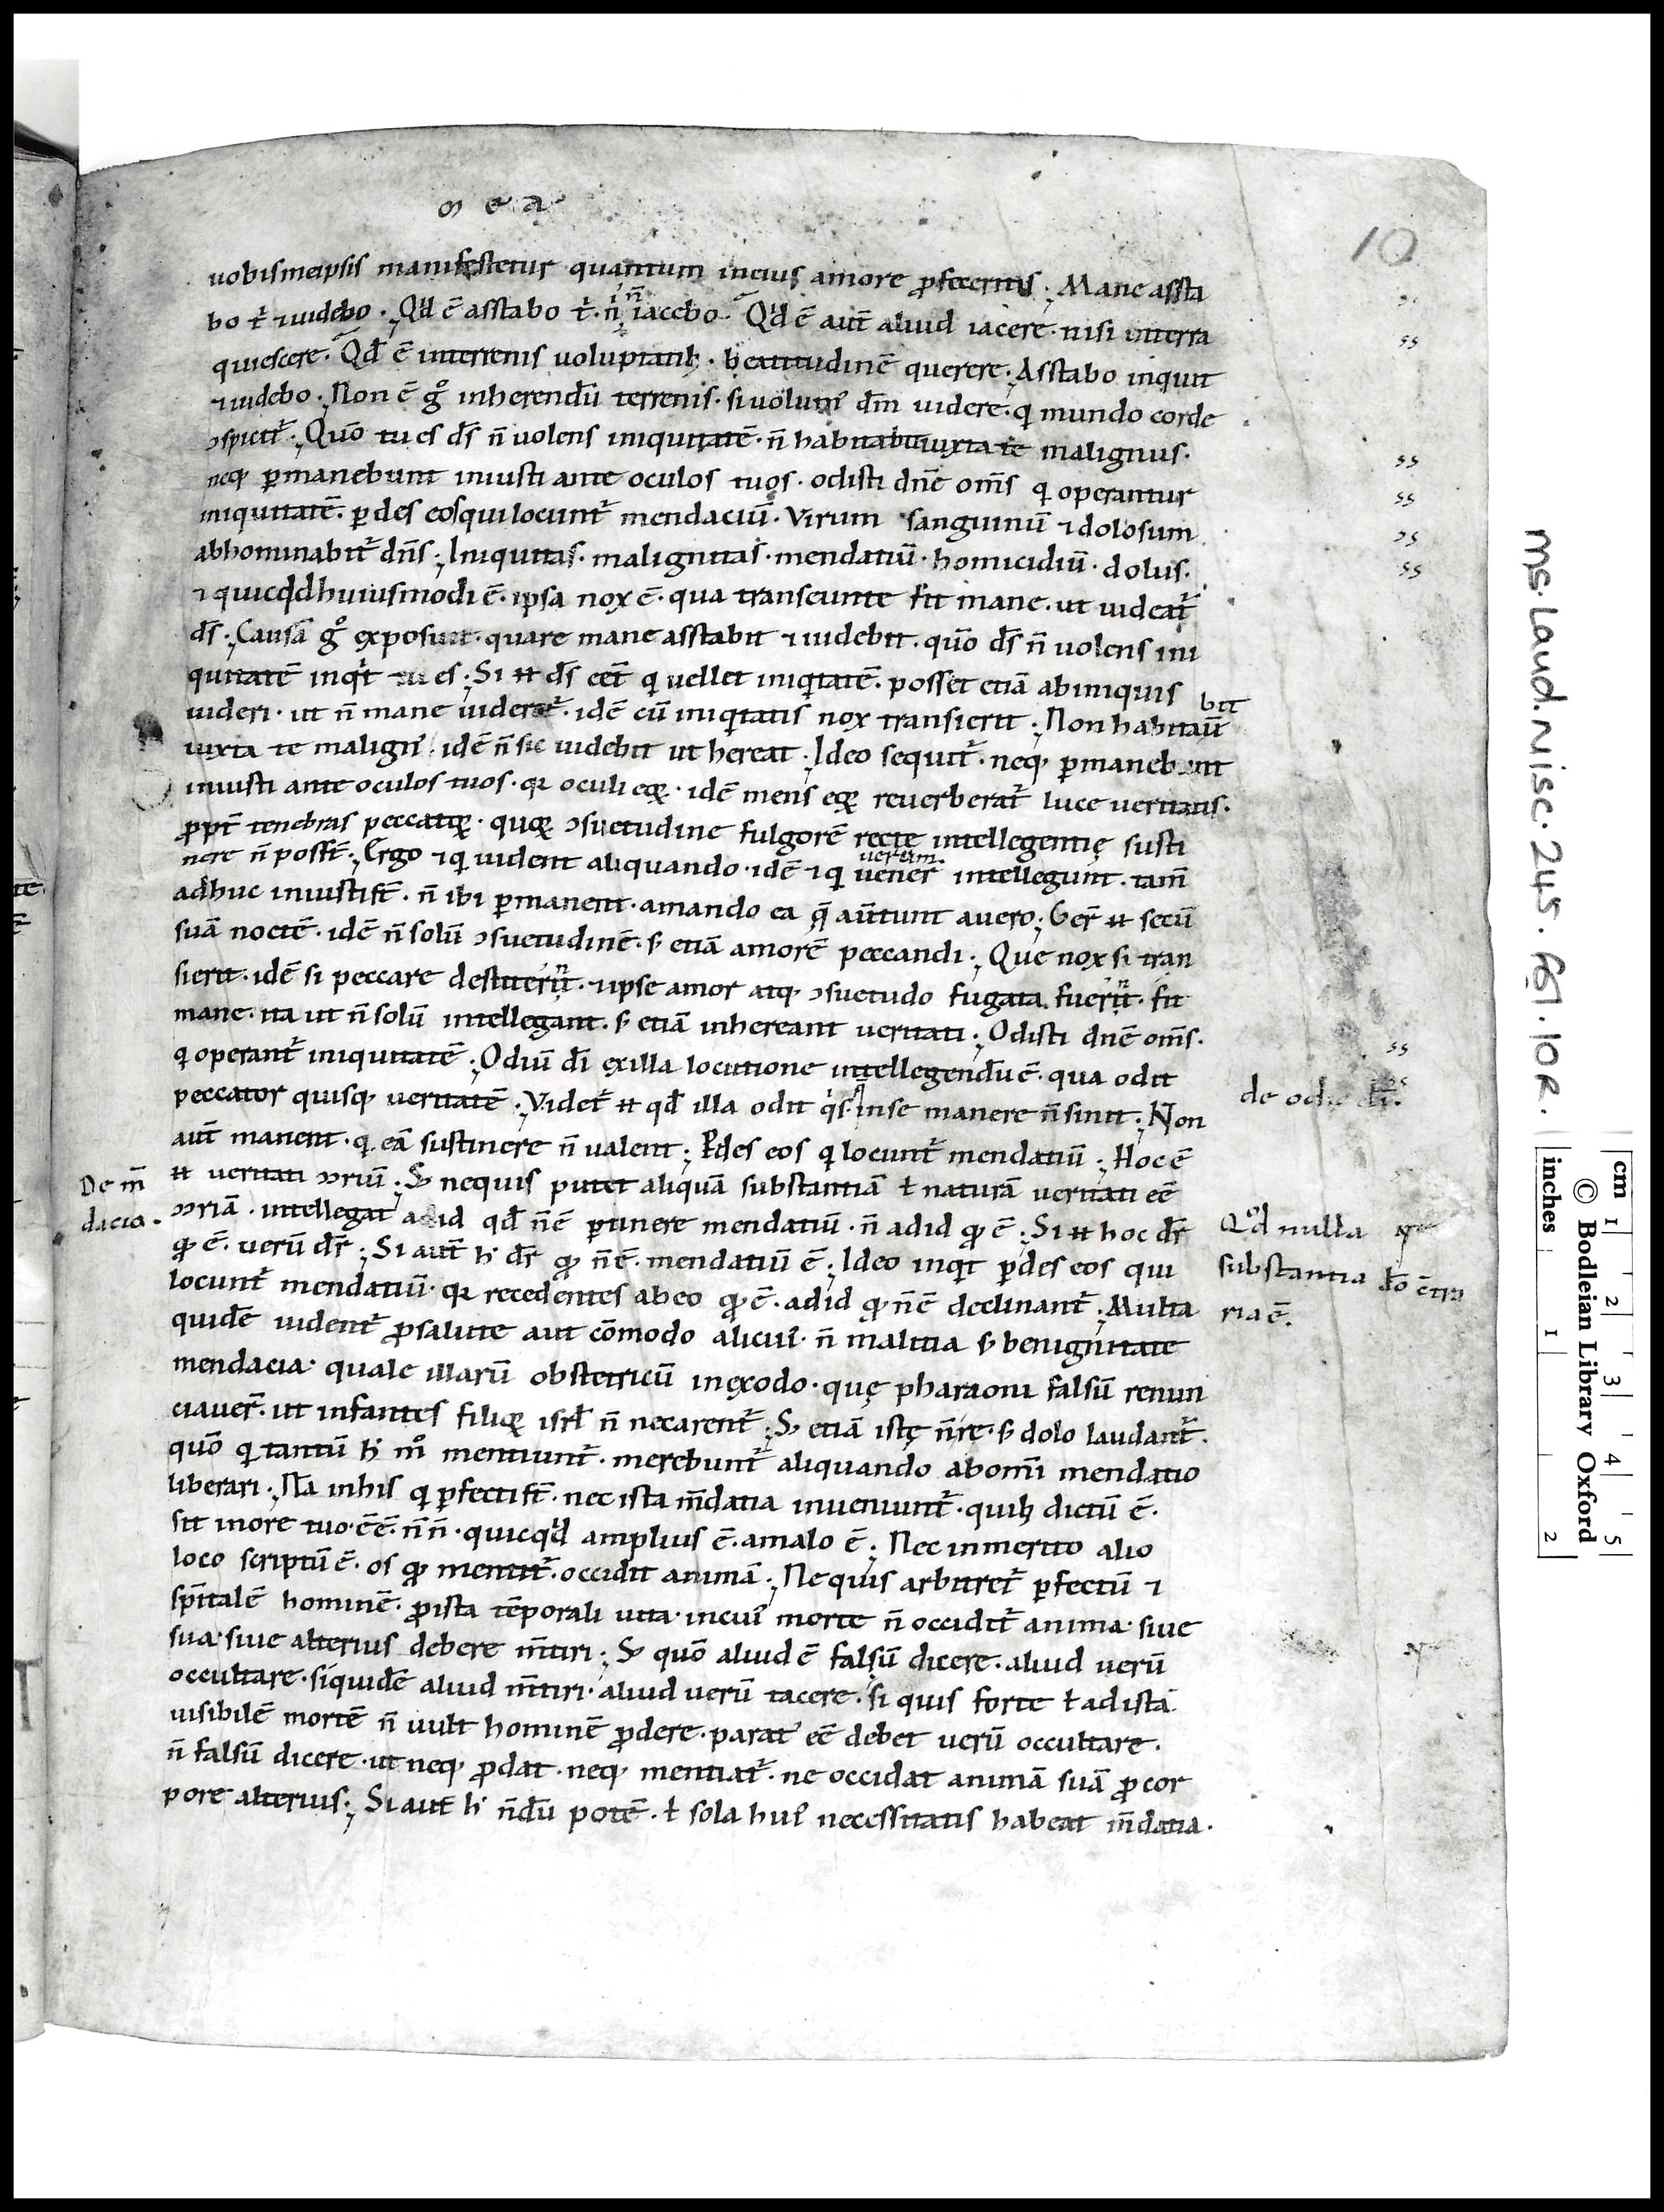 m e a
10
uobismeipsis manifestetur quantum ineius amore ꝓfeceritis ; Mane assta
bo t̄ ⁊uidebo . Qđ ē asstabo t̄ . ñ iacebo . Qđ ē aut̄ aliud iacere . nisi interra
quiescere . Qđ ē interrenis uoluptatib; . beatitudinē querere . Asstabo inquit
⁊uidebo . Non ē gͦ inherendū terrenis . si uolum᾽ dm̄ uidere . q mundo corde
ɔspicit̄ . Quō tu es ds̄ ñ uolens iniquitatē . ñ habitabit iuxta te malignus .
neq; ꝑmanebunt iniusti ante oculos tuos . odisti dnē om̄s q operantur
iniquitatē . ꝑdes eos qui locunt̄ mendaciū . Virum sanguinū ⁊ dolosum
abhominabit̄ dn̄s ; Iniquitas . malignitas . mendatiū . homicidiū . dolus .
⁊ quicqd huiusmodi ē . ipsa nox ē . qua transeunte fit mane . ut uideat̄
ds̄ ; Causā gͦ exposuit . quare mane asstabit ⁊ uidebit . quō ds̄ ñ uolens ini
quitatē inqͥt tu es ; Si ⧺ ds̄ eēt q uellet iniqͥtatē . posset etiā abiniquis
bit
uideri . ut ñ mane uideret̄ . idē cū iniqͥtatis nox transierit ; Non habitaū
iuxta te malign᾽ . idē ñ sic uidebit ut hereat . Ideo sequit̄ . neq; ꝑmanebunt
iniusti ante oculos tuos . qꝛ oculi eoꝝ . idē mens eoꝝ reuerberat̄ luce ueritatis .
ꝓpt̄ tenebras peccatoꝝ . quoꝝ ɔsuetudine fulgorē recte intellegentię susti
nere ñ possūt ; Ergo ⁊ q uident aliquando . idē ⁊ q
uerum
intellegunt . tam̄
adhuc iniusti st̄ . ñ ibi ꝑmanent . amando ea q̄ aūtunt auero ; Ger̄ ⧺ secū
suā noctē . idē ñ solū ɔsuetudinē . s; etiā amorē peccandi ; Que nox si tran
sierit . idē si peccare destiterit . ⁊ ipse amor atq; ɔsuetudo fugata fuerit . fit
mane . ita ut ñ solū intellegant . s; etiā inhereant ueritati ; Odisti dnē om̄s .
q operant̄ iniquitatē ; Odiū dī exilla locutione intellegendū ē . qua odit
de odio dī .
peccator quisq; ueritatē ; Videt̄ ⧺ qđ illa odit qͦs inse manere ñ sinit ; Non
aut̄ manent . q eā sustinere ñ ualent ; Ꝑdes eos q locunt̄ mendatiū ; Hoc ē
De m̄
dacio .
⧺ ueritati ɔriū ; S; nequis putet aliquā substantiā ł naturā ueritati eē
ɔriā . intellegat adid qđ ñē ꝑtinere mendatiū . ñ adid qđ ē ; Si ⧺ hoc dr̄
qđ ē . uerū dr̄ ; Si aut̄ h᾽ dr̄ qđ ñē . mendatiū ē ; Ideo inqͥt ꝑdes eos qui
Qͦd nulla
substantia
ria ē .
locunt̄ mendatiū . qꝛ recedentes abeo qđ ē . adid qđ ñē declinant̄ ; Multa
quidē uident̄ ꝓsalute aut cōmodo alicui᾽ . ñ malitia s; benignitate
mendacia . quale illarū obstetricū inexodo . quę pharaoni falsū renun
ciauer̄ . ut infantes filioꝝ isrl̄ ñ necarent̄ ; S; etiā istę ñ re . s; dolo laudant̄ .
quō q tantū h᾽ mͦ mentiunt̄ . merebunt̄ aliquando abom̄i mendatio
liberari ; Nā inhis q ꝑfecti st̄ . nec ista m̄datia inueniunt̄ . quib; dictū ē .
sit inore tuo . ē ē . ñ ñ . quicqͥd amplius ē . amalo ē ; Nec inmerito alio
loco scriptū ē . os qđ mentit̄ . occidit animā ; Ne quis arbitret̄ ꝑfectū ⁊
sp̄italē hominē . ꝓista tēporali uita . incui᾽ morte ñ occidit̄ anima . siue
sua . siue alterius debere m̄tiri ; S; quō aliud ē falsū dicere . aliud uerū
occultare . siquidē aliud m̄tiri . aliud uerū tacere . si quis forte ł adistā
uisibilē mortē ñ uult hominē ꝓdere . parat᾽ eē debet uerū occultare .
ñ falsū dicere . ut neq; ꝓdat . neq; mentiat̄ . ne occidat animā suā ꝓ cor
pore alterius ; Si aut̄ h᾽ ñdū potē . ł sola hui᾽ necessitatis habeat m̄datia .
MS. Laud. Misc. 245. fol. 10R.
cm 1 2 3 4 5
© Bodleian Library Oxford
inches 1 2